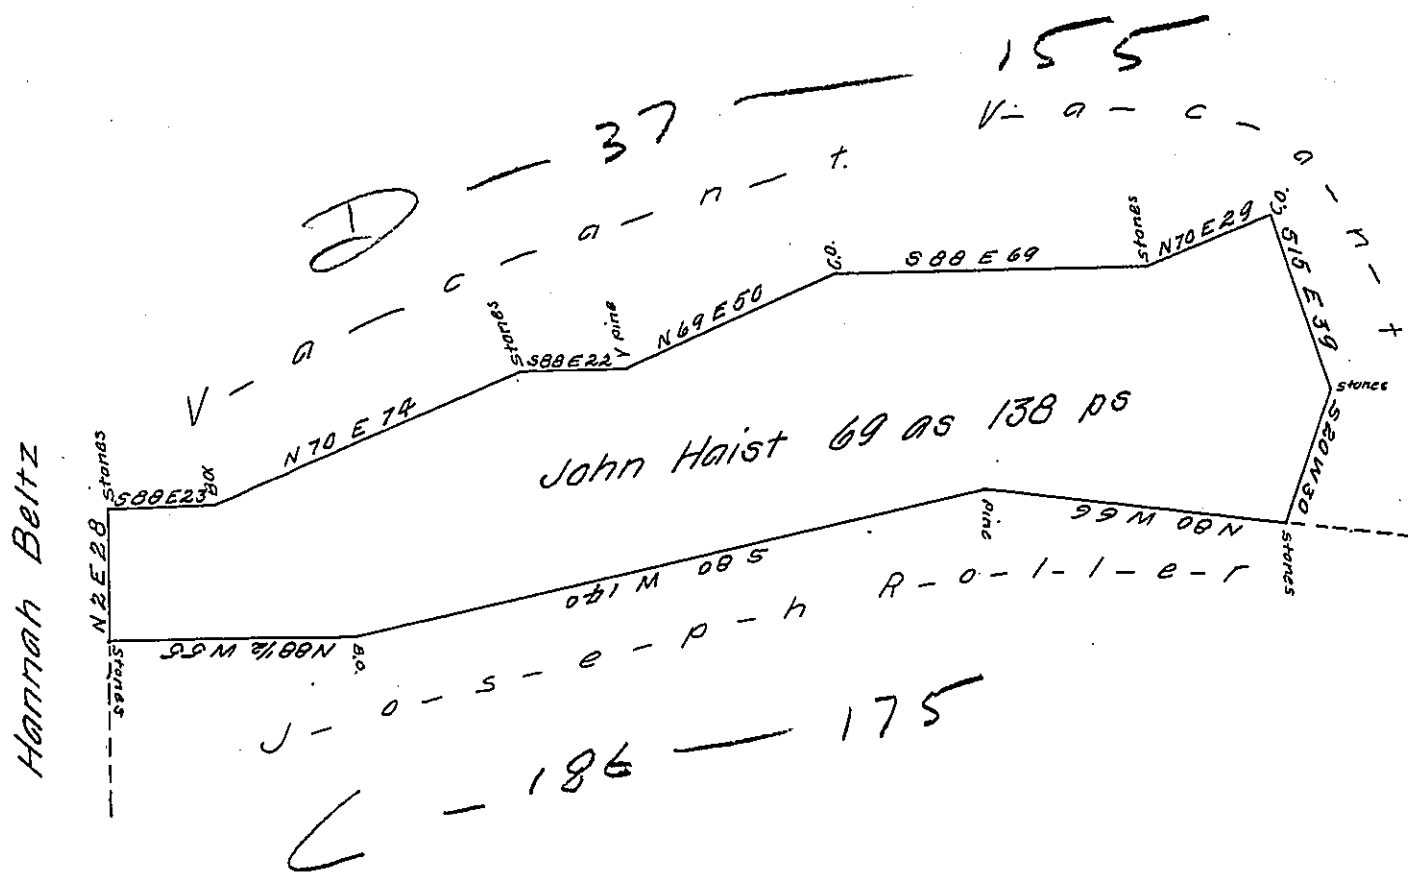 D — 37 — 155
V - a - c - a - n - t.
V - a - c - a - n - t
Hannah Beltz
Stones
S88E23
BO
N70 E 74
Stones
S88E22
Y Pine
N69E50
C.O.
S88 E 69
Stones
N70E29
C.O.
S15 E 39
Stones
S20W30
Stones
N80 W66
Pine
S80 W 140
B.O.
N88½ W55
Stones
N2E28
John Haist 69 as 138 ps
J - o - s - e - p - h R - o - l - l - e - r
C - 186 — 175